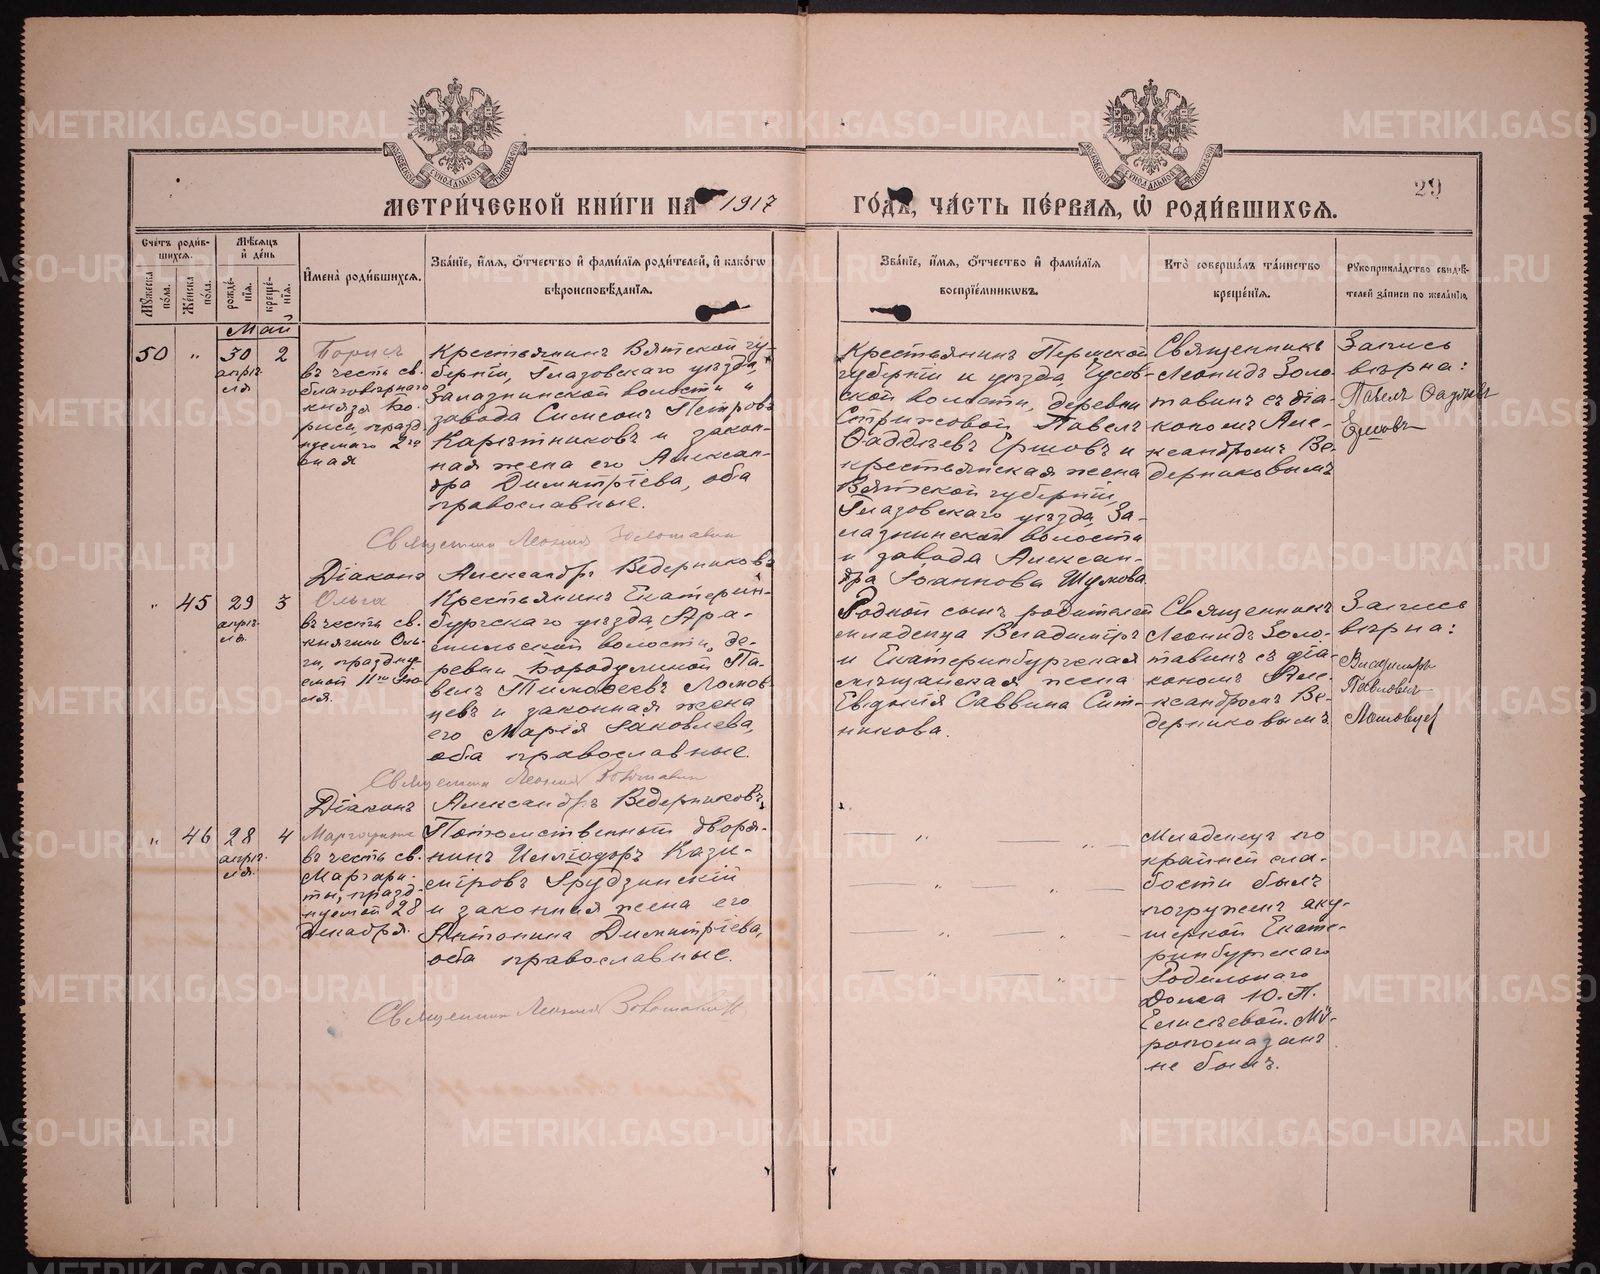 29
МЕТРИ́ЧЕСКОЙ КНИ́ГИ НА 1917 ГО́ДЪ, ЧА́СТЬ ПЕ́РВАЯ, Ѡ РОДИ́ВШИХСЯ.
Сче́тъ роди́в-
шихся.
Мѣ́сяцъ
и҆ де́нь
Мꙋ́жеска по́ла.
Же́нска по́ла.
рожде́-
нія.
креще́-
нія.
И҆мена̀ роди́вшихся.
Зва́ніе, и҆́мя, ѻ҆́тчество и҆ фами́лія роди́телей, и҆ како́гѡ
вѣроисповѣ́данія.
Зва́ніе, и҆́мя, ѻ҆́тчество и҆ фами́лія
воспріе́мникѡвъ.
Кто̀ соверша́лъ та́инство
креще́нія.
Рꙋкоприкла́дство свидѣ́-
телей за́писи по жела́нію.
Май
50 " 30 2
апрѣ-
ля
Борисъ
въ честь св.
благовѣрнаго
князя Бо-
риса, празд-
нуемаго 2го
мая
Крестьянинъ Вятской гу-
берніи, Глазовскаго уѣзда,
Залазнинской волости и
завода Симеонъ Петровъ
Каратниковъ и закон-
ная жена его Алексан-
дра Димитріева, оба
православные.
Священникъ Леонидъ Золотавинъ
Діаконъ Александръ Ведерниковъ
Крестьянинъ Пермской
губерніи и уѣзда, Чусов-
ской волости, деревни
Стрижовой Павелъ
Фаддѣевъ Ершовъ и
крестьянская жена
Вятской губерніи,
Глазовскаго уѣзда, За-
лазнинской волости
и завода Алексан-
дра Іоаннова Шумова
Священникъ
Леонидъ Золо-
тавинъ съ діа-
кономъ Але-
ксандромъ Ве-
дерниковымъ
Запись
вѣрна:
Павелъ Фадѣевъ
Ершовъ
" 45 29 3
апрѣ-
ля.
Ольга
въ честь св.
княгини Оль-
ги, праздну-
емой 11го Ію-
ля.
Крестьянинъ Екатерин-
бургскаго уѣзда, Ара-
мильской волости, де-
ревни Бородулиной Па-
велъ Тимоѳеевъ Ломов-
цевъ и законная жена
его Марія Іаковлева,
оба православные.
Священникъ Леонидъ Золотавинъ
Діаконъ Александръ Ведерниковъ
Родной сынъ родителей
младенца Владимиръ
и Екатеринбургская
мѣщанская жена
Евдокія Саввина Сит-
никова.
Священникъ
Леонидъ Золо-
тавинъ съ діа-
кономъ Але-
ксандромъ Ве-
дерниковымъ
Запись
вѣрна:
Владимиръ
Павловичъ
Ломовцев
" 46 28 4
апрѣ-
ля.
Маргарита
въ честь св.
Маргари-
ты, празд-
нуемой 28
декабря.
Потомственный дворя-
нинъ Илліодоръ Кази-
міровъ Грудзинскій
и законная жена его
Антонина Димитріева,
оба православные.
Священникъ Леонидъ Золотавинъ
Младенецъ по
крайней сла-
бости былъ
погруженъ аку-
шеркой Екате-
ринбургскаго
Родильнаго
Дома Ю. П.
Елисѣевой. Мѵ-
ропомазанъ
не былъ.
METRIKI.GASO-URAL.RU